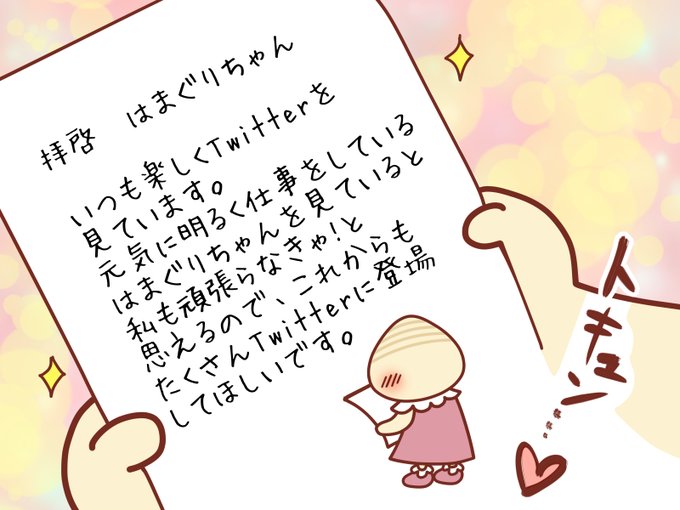 拝啓　はまぐりちゃん
いつも楽しくTwitterを
見ています。
元気に明るく仕事をしている
はまぐりちゃんを見ていると
私も頑張らなきゃ!と
思えるので、これからも
たくさんTwitterに登場
してほしいです。
トキュン…